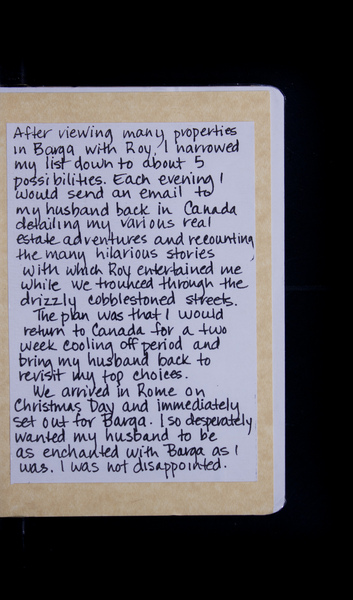 After viewing many properties
in Barga with Roy, I narrowed
my list down to about 5
possibilities. Each evening I
would send an email to
my husband back in Canada
detailing my various real
estate adventures and recounting
the many hilarious stories
with which Roy entertained me
while we trounced through the
drizzly cobblestoned streets.
The plan was that I would
return to Canada for a two
week cooling off period and
bring my husband back to
revisit my top choices.
We arrived in Rome on
Christmas Day and immediately
set out for Barga. I so desperately
wanted my husband to be
as enchanted with Barga as I
was. I was not disappointed.